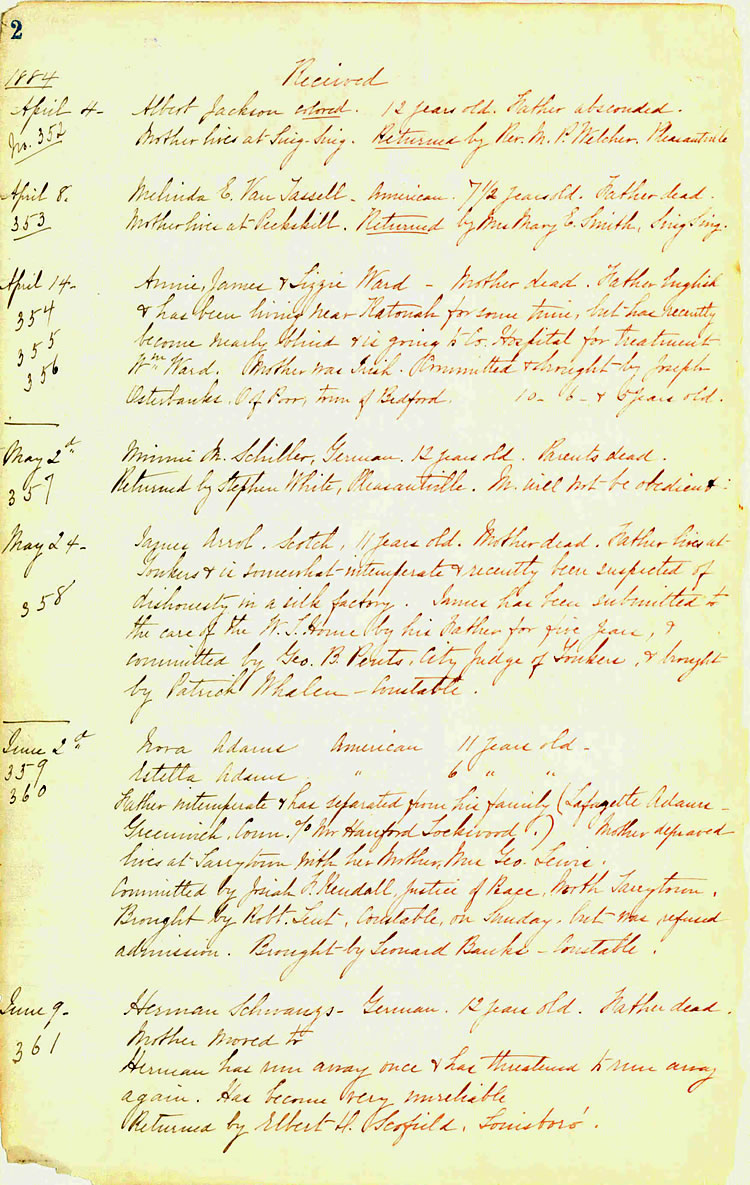 2
1884 Received
April 4- Albert Jackson colored. 12 years old. Father absconded.
No. 352 Mother lives at Sing-Sing. Returned by Rev. M. P. Welcher. Pleasantville
April 8. Melinda E. Van Tassell - American. 7 1/2 years old. Father dead.
353 Mother lives at Peekskill. Returned by Mrs Mary E. Smith, Sing Sing.
April 14- Annie, James & Lizzie Ward - Mother dead. Father English
354 & has been living near Katonah for some time, but has recently
355 become nearly blind & is going to Co. Hospital for treatment
356 Wm Ward. Mother was Irish. Committed & brought by Joseph
Osterbanks, O of Poor, town of Bedford. 10- 6- & 5 years old.
May 2d Minnie M. Schiller, German. 12 years old. Parents dead.
357 Returned by Stephen White, Pleasantville. M. will not be obedient.
May 24- James Arrol. Scotch, 11 years old. Mother dead. Father lives at
Yonkers & is somewhat intemperate & recently been suspected of
358 dishonesty in a silk factory. James has been submitted to
the care of the W. T. Home by his Father for five years, &
committed by Geo. B. Pents, City Judge of Yonkers, & brought
by Patrick Whalen - Constable.
June 2d Nora Adams American 11 years old-
359 Estella Adams " 6 " "
360 Father intemperate & has separated from his family (Lafayette Adams-
Greenwich, Conn. c/o Mr Hanford Lockwood.) Mother depraved
lives at Tarrytown with her Mother, Mrs Geo. Lewis.
Committed by Josiah F. Kendall, Justice of Peace, North Tarrytown.
Brought by Robt. Lent, Constable, on Sunday. but was refused
admission. Brought by Leonard Banks - Constable.
June 9- Herman Schwangs- German. 12 years old. Father dead.
361 Mother moved to
Herman has run away once & has threatened to run away
again. Has become very unreliable
Returned by Elbert H. Scofield. Louisboro'.